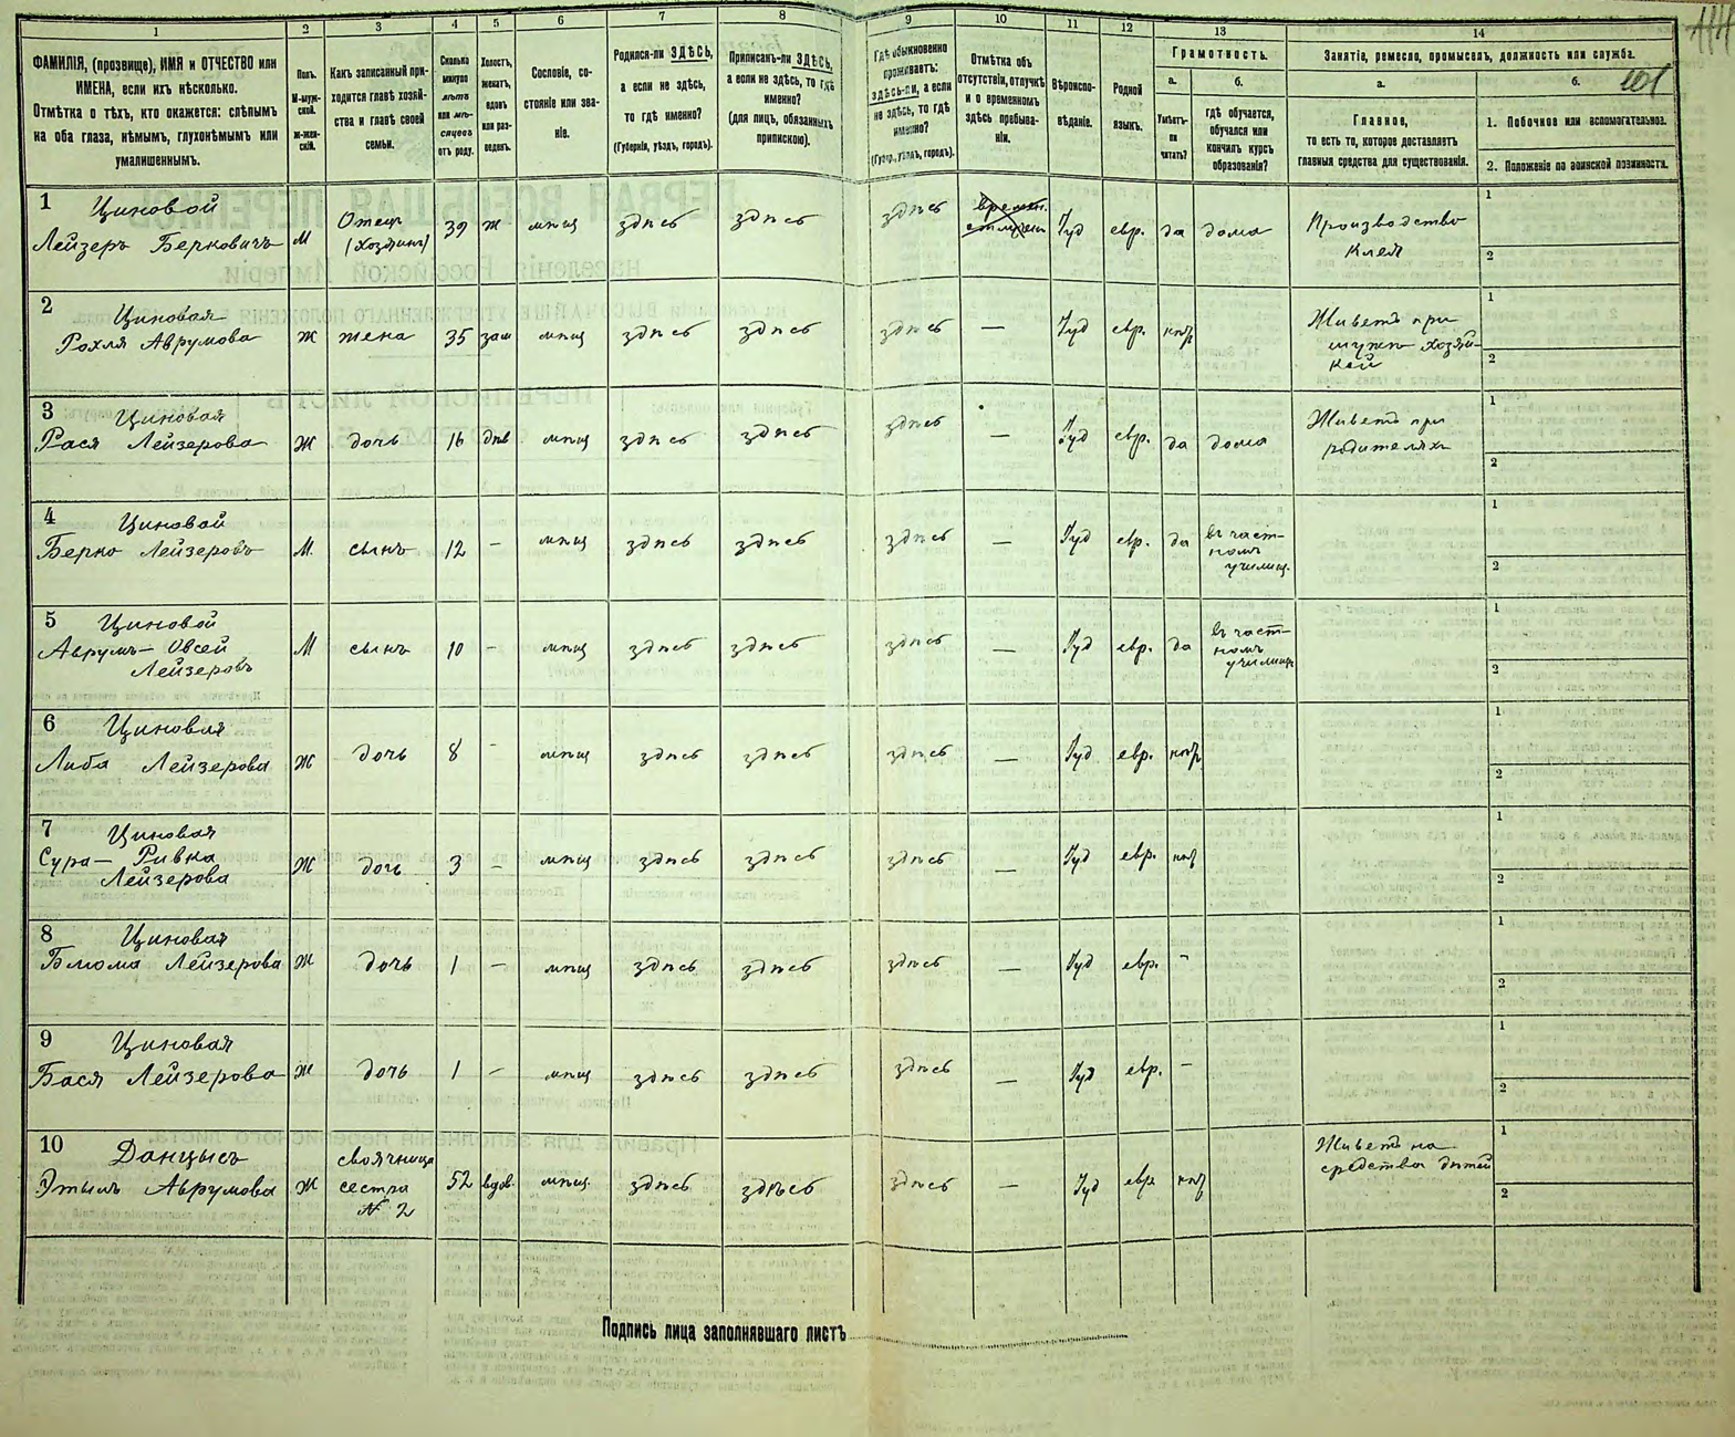 1 2 3 4 5 6 7 8 9 10 11 12 13 14
ФАМИЛІЯ, (прозвище), ИМЯ и ОТЧЕСТВО или
ИМЕНА, если ихъ нѣсколько.
Отмѣтка о тѣхъ, кто окажется: слѣпымъ
на оба глаза, нѣмымъ, глухонѣмымъ или
умалишеннымъ.
Полъ.
М-муж-
ской.
Ж-жен-
скій.
Какъ записанный при-
ходится главѣ хозяй-
ства и главѣ своей
семьи.
Сколько
минуло
лѣтъ
или мѣ-
сяцевъ
отъ роду.
Холостъ,
женатъ,
вдовъ
или раз-
веденъ.
Сословіе, со-
стояніе или зва-
ніе.
Родился-ли ЗДѢСЬ,
а если не здѣсь,
то гдѣ именно?
(Губернія, уѣздъ, городъ).
Приписанъ-ли ЗДѢСЬ,
а если не здѣсь, то гдѣ
именно?
(для лицъ, обязанныхъ
припискою).
Гдѣ обыкновенно
проживаетъ:
здѣсь-ли, а если
не здѣсь, то гдѣ
именно?
(Губер., уѣздъ, городъ).
Отмѣтка объ
отсутствіи, отлучкѣ
и о временномъ
здѣсь пребыва-
ніи.
Вѣроиспо-
вѣданіе.
Родной
языкъ.
Грамотность.
а.
Умѣетъ-
ли
читать?
б.
гдѣ обучается,
обучался или
кончилъ курсъ
образованія?
Занятіе, ремесло, промыселъ, должность или служба.
а.
Главное,
то есть то, которое доставляетъ
главныя средства для существованія.
б.
1. Побочное или вспомогательное.
2. Положеніе по воинской повинности.
101
1 Циновой
Лейзеръ Берковичъ М Отецъ (хозяинъ) 39 ж мѣщ здѣсь здѣсь здѣсь времен. отлучен Іуд евр. да дома Производство клея 1 2
2 Циновая
Рохля Аврумова Ж жена 35 зам мѣщ здѣсь здѣсь здѣсь — Іуд евр. нѣт Живетъ при мужѣ хозяй- кой 1 2
3 Циновая
Рася Лейзерова Ж дочь 16 дѣв мѣщ здѣсь здѣсь здѣсь — Іуд евр. да дома Живетъ при родителяхъ 1 2
4 Циновой
Берко Лейзеровъ М. сынъ 12 - мѣщ здѣсь здѣсь здѣсь — Іуд евр. да въ част- номъ училищ. 1 2
5 Циновой
Аврумъ-Овсей
Лейзеровъ М сынъ 10 - мѣщ здѣсь здѣсь здѣсь — Іуд евр. да въ част- номъ училищ 1 2
6 Циновая
Либа Лейзерова Ж дочь 8 - мѣщ здѣсь здѣсь здѣсь — Іуд евр. нѣт 1 2
7 Циновая
Сура-Ривка
Лейзерова Ж дочь 3 - мѣщ здѣсь здѣсь здѣсь — Іуд евр. нѣт 1 2
8 Циновая
Блюма Лейзерова Ж дочь 1 - мѣщ здѣсь здѣсь здѣсь — Іуд евр. - 1 2
9 Циновая
Бася Лейзерова Ж дочь 1 - мѣщ здѣсь здѣсь здѣсь — Іуд евр. - 1 2
10 Данцысъ
Этыль Аврумова Ж своячница сестра № 2 52 вдов. мѣщ. здѣсь здѣсь здѣсь — Іуд евр. нѣт Живетъ на средства дѣтей 1 2
Подпись лица заполнявшаго листъ